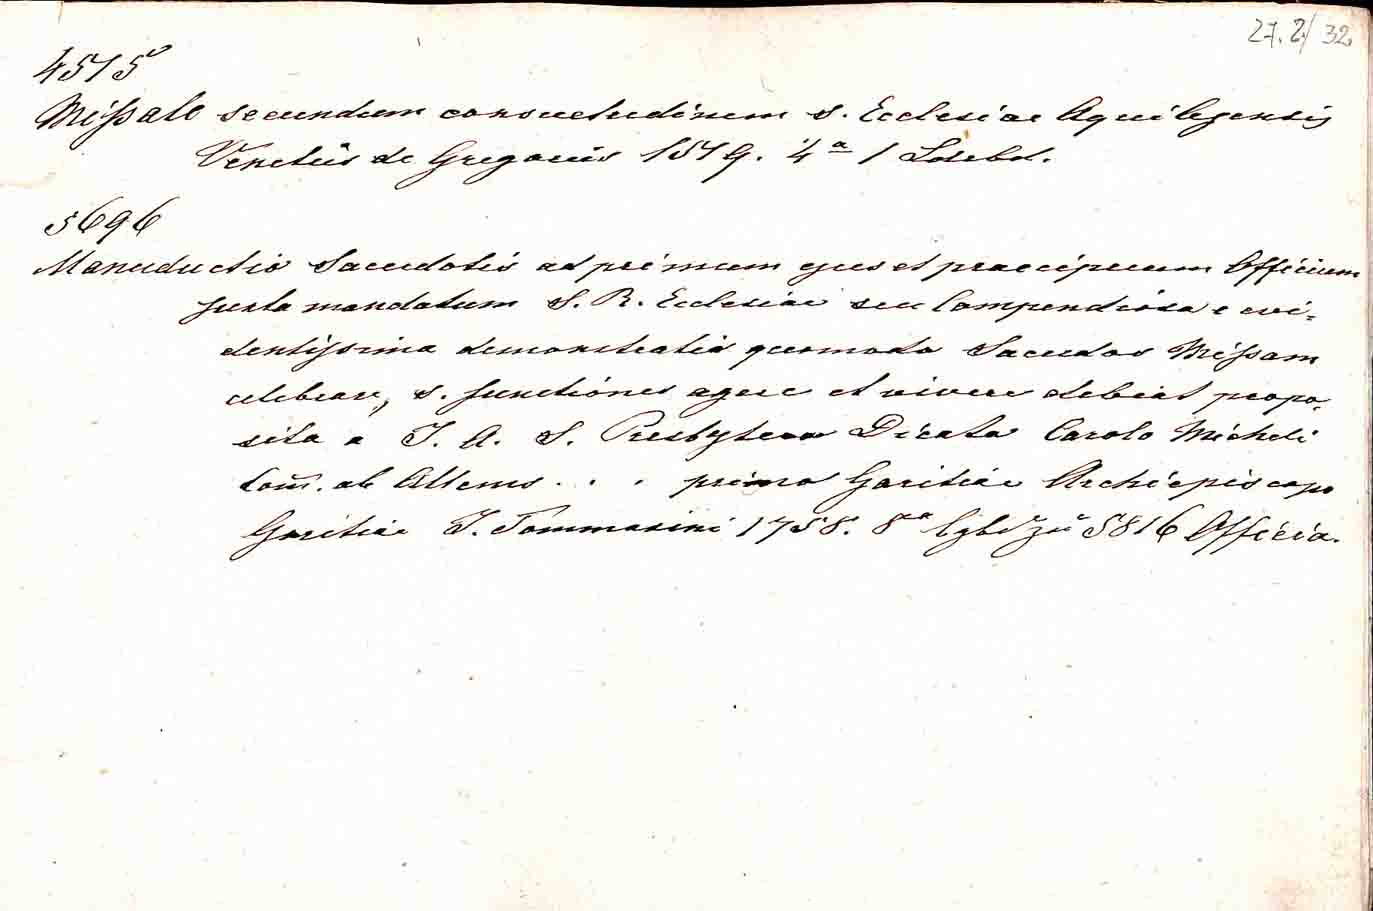 27. 2/ 32
4575
Missale secundum consuetudinem S. Ecclesiae Aquilegensis
Venetiis de Gregoriis 1519. 4ª 1
5696
Manuductio Sacerdotis ad primum ejus et praecipuum Officium
juxta mandatum S. R. Ecclesiae seu Compendiosa e evi-
dentissima demonstratio quomodo Sacerdos Missam
celebrare, S. functiones agere et vivere debeat propo-
sita a J. A. S. Presbytero Dicata Carolo Micheli
Com. ab Attems . . . primo Goritiae Archiepiscopo
Goritiae J. Tommasini 1758. 8º zu 5816 Officia.